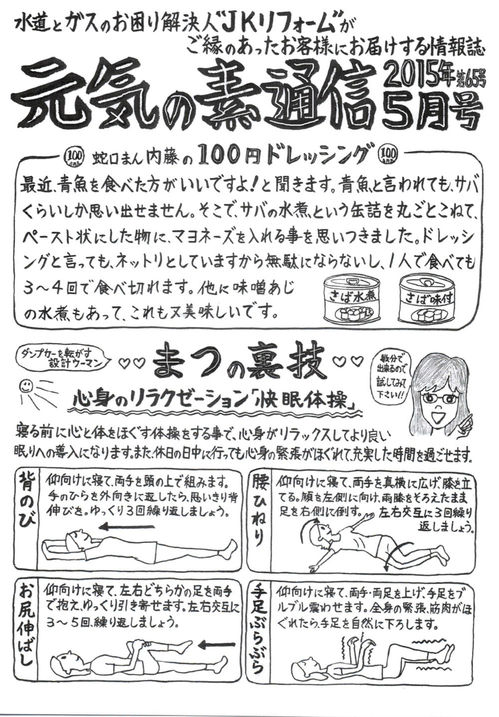 水道とガスのお困り解決人"JKリフォーム"が
ご縁のあったお客様にお届けする情報誌
元気の素通信
2015年第65号
5月号
100 蛇口まん内藤の100円ドレッシング 100
最近、青魚を食べた方がいいですよ!と聞きます。青魚と言われても、サバ
くらいしか思い出せません。そこで、サバの水煮という缶詰を丸ごとこねて、
ペースト状にした物に、マヨネーズを入れる事を思いつきました。ドレッシ
ングと言っても、ネットリとしていますから無駄にならないし、1人で食べても
3〜4回で食べ切れます。他に味噌あじ
の水煮もあって、これも又美味しいです。
さば水煮
さば味付
ダンプカーを転がす
設計ウーマン
♡♡まつの裏技♡♡
心身のリラクゼーション「快眠体操」
数分で
出来るので
試してみて
下さい!!
寝る前に心と体をほぐす体操をする事で、心身がリラックスしてより良い
眠りへの導入になります。また、休日の日中に行っても心身の緊張がほぐれて充実した時間を過ごせます。
背のび
仰向けに寝て、両手を頭の上で組みます。
手のひらを外向きに返したら、思いきり背
伸びを。ゆっくり3回繰り返しましょう。
腰ひねり
仰向けに寝て、両手を真横に広げ、膝を立
てる。顔を左側に向け、両膝をそろえたまま
足を右側に倒す。左右交互に3回繰り
返しましょう。
お尻伸ばし
仰向けに寝て、左右どちらかの足を両手
で抱え、ゆっくり引き寄せます。左右交互に
3〜5回、繰り返しましょう。
手足ぶらぶら
仰向けに寝て、両手・両足を上げ、手足をブ
ルブル震わせます。全身の緊張、筋肉がほ
ぐれたら、手足を自然に下ろします。